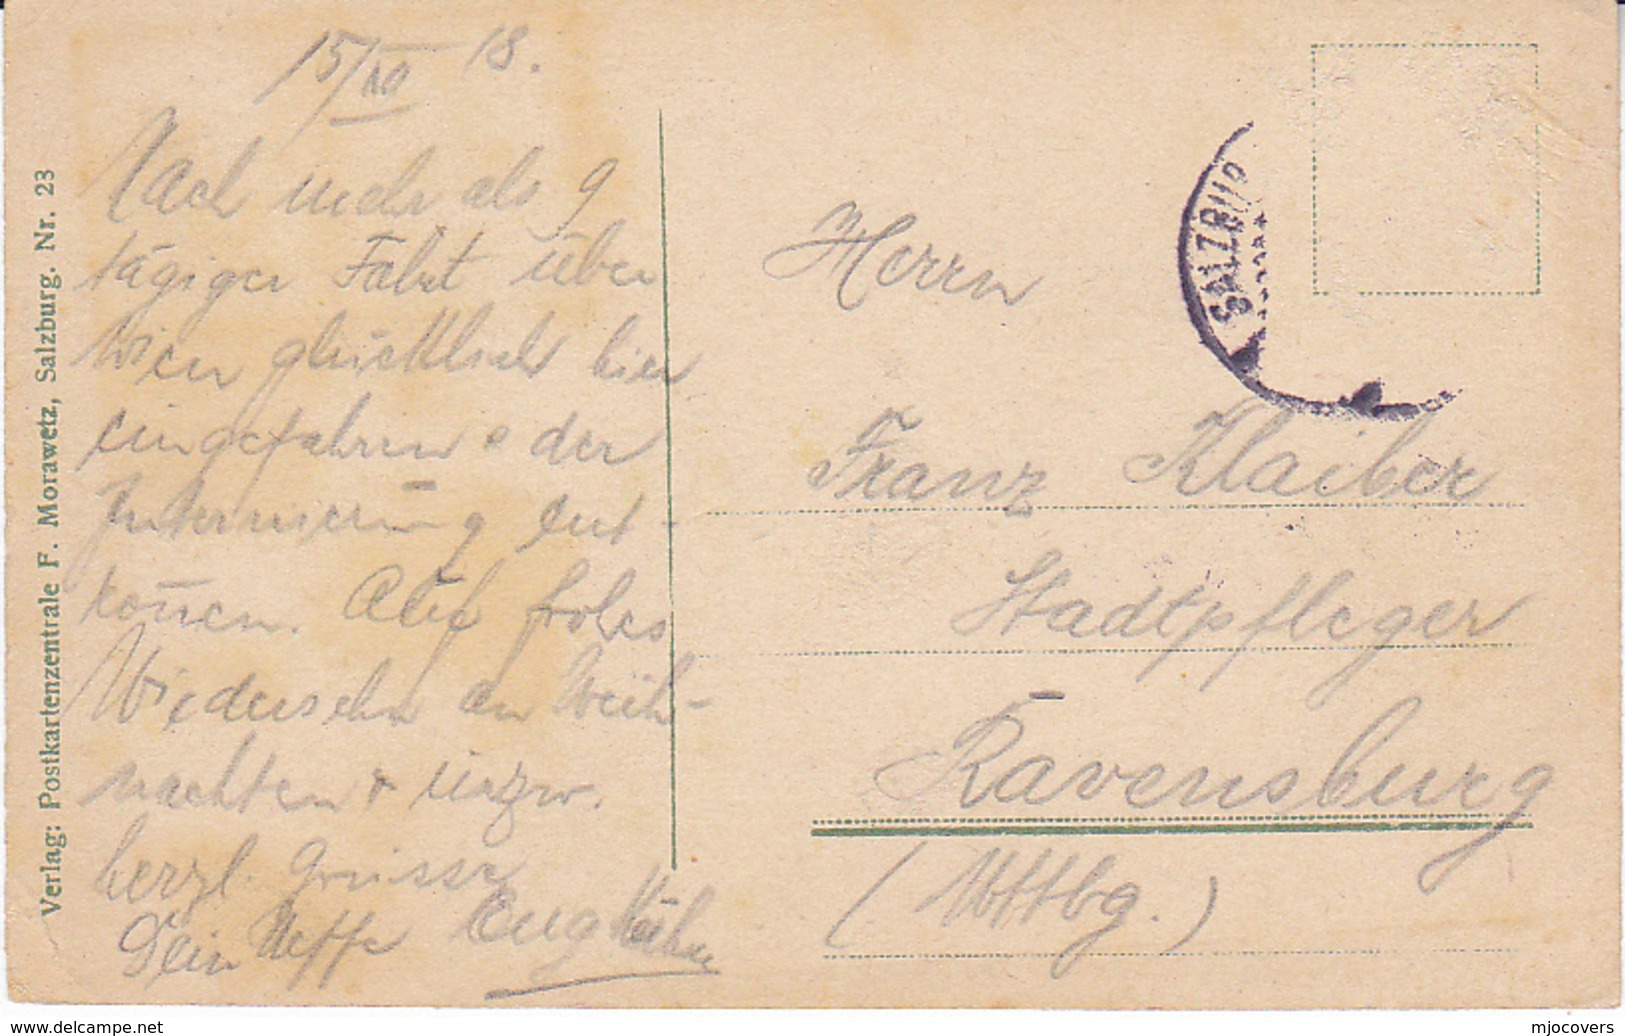 15/XII 18.
Nach mehr als 9
tägiger Fahrt über
Wien glücklich hier
eingefahren & der
Internierung ent-
konnen. Auf frohes
Wiedersehn an Weih-
nachten & inzw.
herzl. Grüsse
Dein Neffe Eug
Herrn
Franz Klaiber
Stadtpfleger
Ravensburg
(Wttbg.)
SALZBURG
Verlag: Postkartenzentrale F. Morawetz, Salzburg. Nr. 23
www.delcampe.net
mjocovers